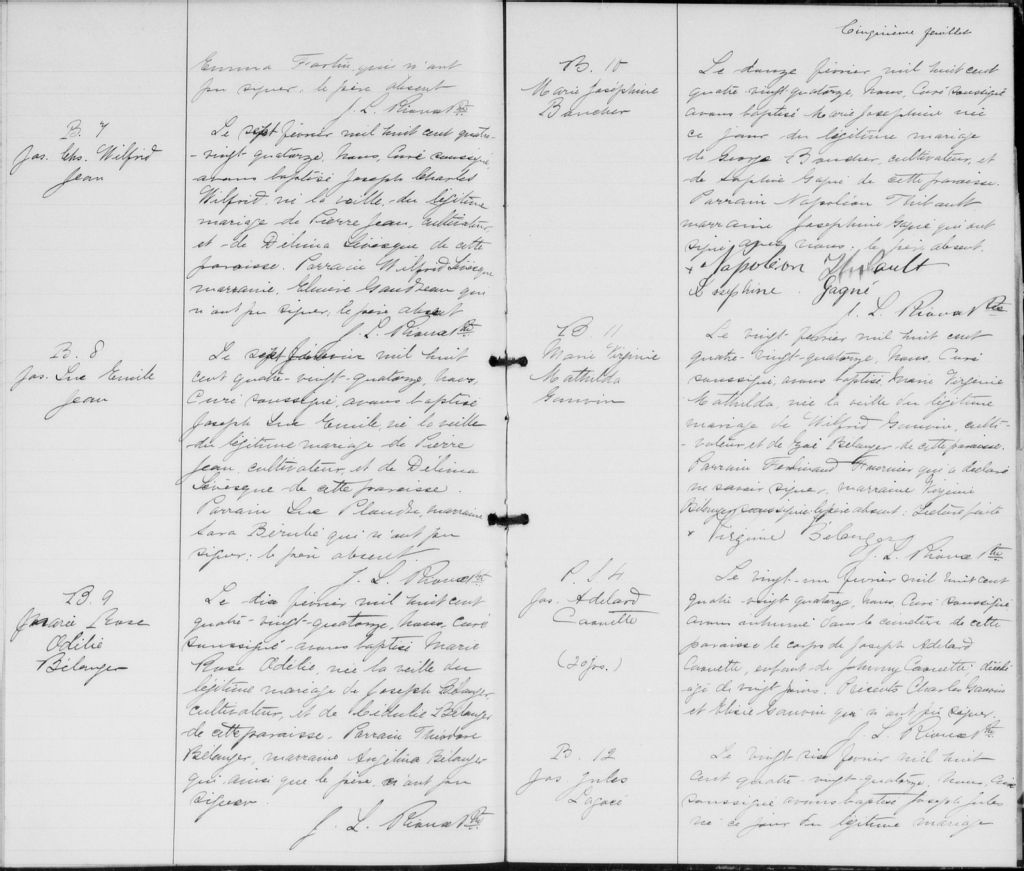 Emma Fortin qui n'ont
pu signer, le père absent
J. L. Rioux Ptr
B. 7
Jos. Chs. Wilfrid
Jean
Le sept février mil huit cent quatre-
-vingt quatorze, Nous, Curé soussigné
avons baptisé Joseph Charles
Wilfrid, né la veille, du légitime
mariage de Pierre Jean, cultivateur
et de Délima Lévesque de cette
paroisse. Parrain Wilfrid Lévesque
marraine, Elmire Gaudreau qui
n'ont pu signer, le père absent
J. L. Rioux Ptr
B. 8
Jos. Luc Emile
Jean
Le sept février mil huit
cent quatre-vingt-quatorze, Nous,
Curé soussigné, avons baptisé
Joseph Luc Emile, né la veille
du légitime mariage de Pierre
Jean, cultivateur, et de Délima
Lévesque de cette paroisse.
Parrain Luc Plourde, marraine
Sara Bérubé qui n'ont pu
signer; le père absent
J. L. Rioux Ptr
B. 9
Marie Rose
Odélie
Bélanger
Le dix février mil huit cent
quatre-vingt-quatorze, Nous, Curé
soussigné avons baptisé Marie
Rose Odélie, née la veille du
légitime mariage de Joseph Bélanger,
cultivateur, et de Bélanger
de cette paroisse. Parrain Théodore
Bélanger, marraine Angélina Bélanger
qui ainsi que le père n'ont pu
signer.
J. L. Rioux Ptr
Cinquième feuillet
B. 10
Marie Joséphine
Boucher
Le douze février mil huit cent
quatre-vingt quatorze, Nous, Curé soussigné
avons baptisé Marie Josephine née
ce jour du légitime mariage
de George Boucher, cultivateur, et
de Sophie Gagné de cette paroisse.
Parrain Napoléon Thibault
marraine Josephine Gagné qui ont
signé avec nous; le père absent.
x Napoléon Thibault
Josephine Gagné
J. L. Rioux Ptr
B. 11
Marie Virginie
Mathilda
Gauvin
Le vingt février mil huit cent
quatre-vingt-quatorze, Nous, Curé
soussigné, avons baptisé Marie Virginie
Mathilda, née la veille du légitime
mariage de Wilfrid Gauvin, culti-
-vateur, et de Zoé Bélanger de cette paroisse.
Parrain Ferdinand Fournier qui a déclaré
ne savoir signer, marraine Virginie
Bélanger soussignée; le père absent; Lecture faite
x Virginie Bélanger
J. L. Rioux Ptr
S. 4
Jos. Adélard
Caouette
(20 jrs.)
Le vingt-un février mil huit cent
quatre-vingt quatorze, Nous, Curé soussigné
avons inhumé dans le cimetière de cette
paroisse le corps de Joseph Adélard
Caouette, enfant de Johnny Caouette; décédé
agé de vingt jours. Présents Charles Gauvin
et Elisée Gauvin qui n'ont pu signer.
J. L. Rioux Ptr
B. 12
Jos. Jules
Lagacé
Le vingt six février mil huit
cent quatre-vingt-quatorze, Nous, Curé
soussigné avons baptisé Joseph Jules
né ce jour du légitime mariage